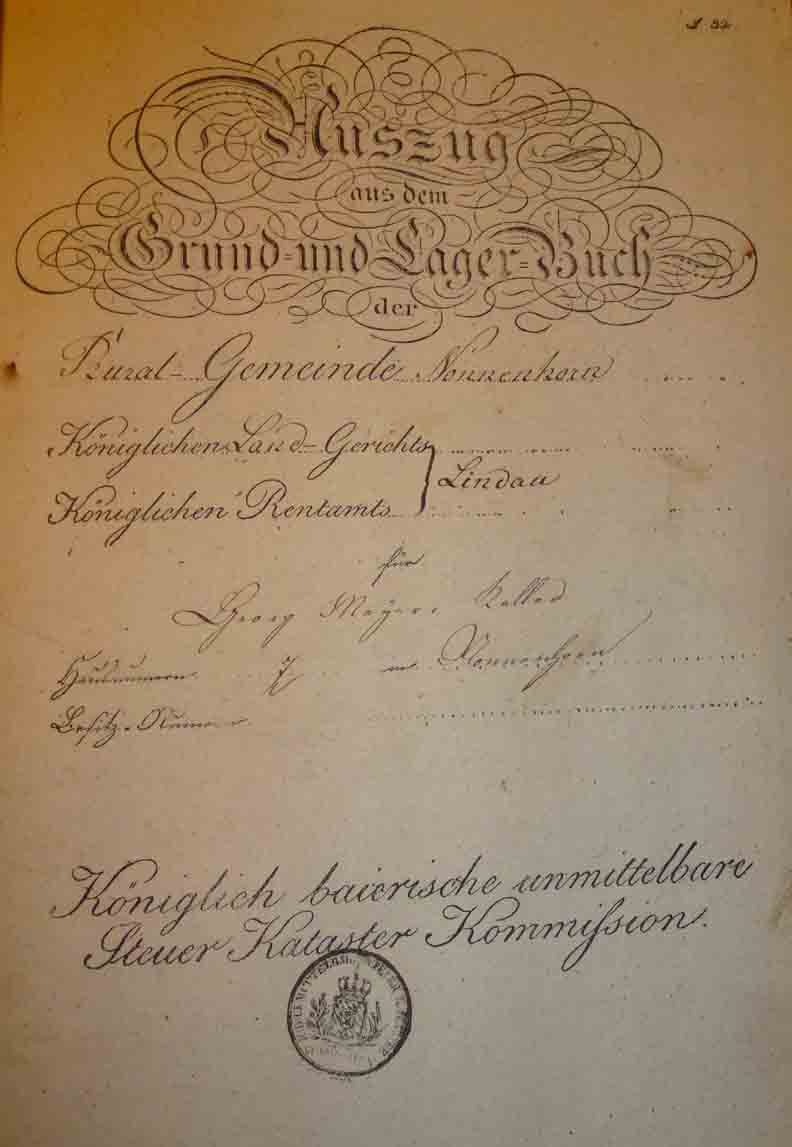 Auszug
aus dem
Grund=und Lager=Buch
der
Rural- Gemeinde Nonnenhorn
Königlichen Land-Gerichts
Lindau
Königlichen Rentamts
für
Georg Meyer, Keller
Hausnumern 7 in Nonnenhorn
Besitz-Numern
Königlich baierische unmittelbare
Steuer Kataster Kommiſsion.